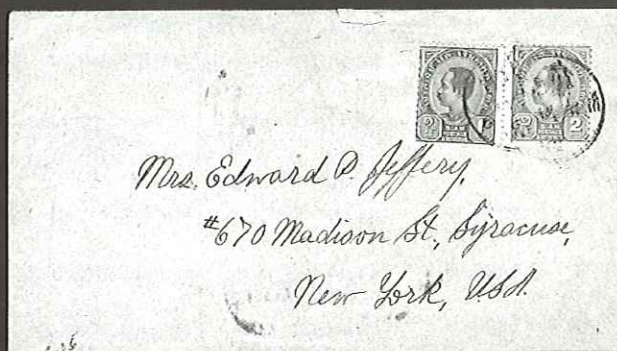 Mrs. Edward P. Jeffery,
#670 Madison St., Syracuse,
New York, U.S.A.
SIAM
2